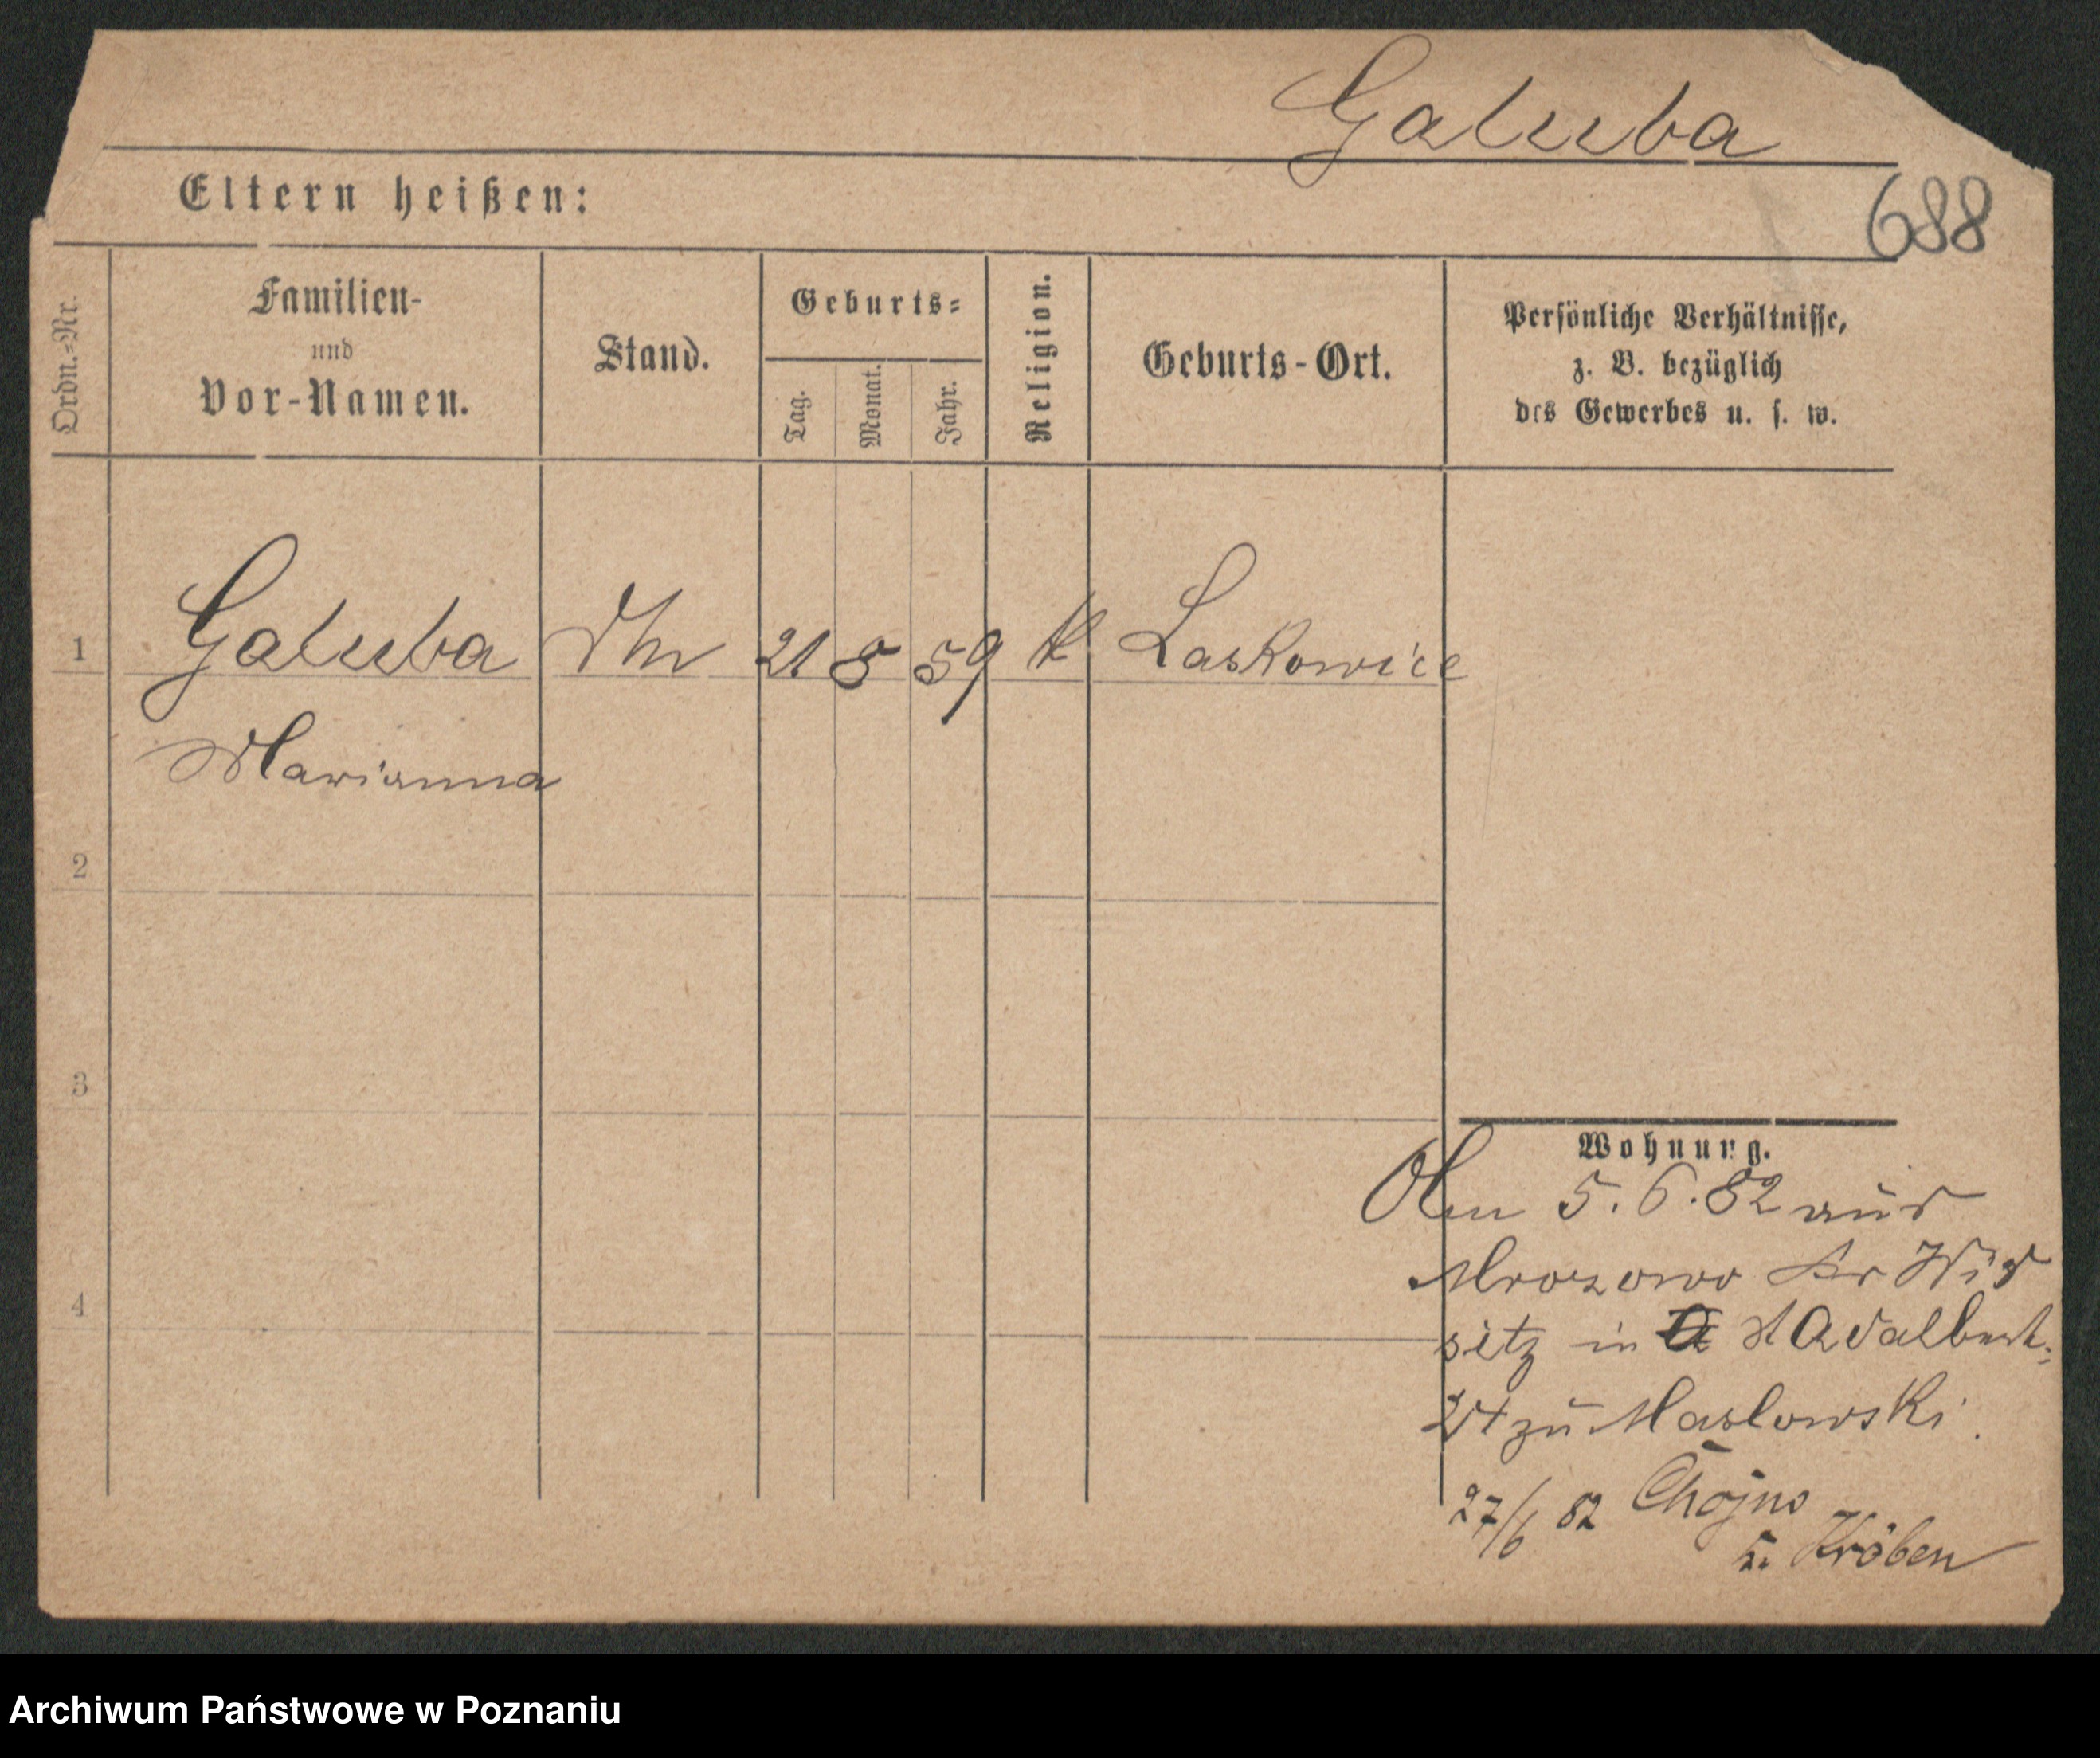 Galuba
688
Eltern heißen:
Ordn.=Nr.
Familien-
und
Vor-Namen.
Stand.
Geburts=
Tag.
Monat.
Jahr.
Religion.
Geburts-Ort.
Persönliche Verhältnisse,
z. B. bezüglich
des Gewerbes u. s. w.
1 Galuba 21 8 59 k Laskowice
Marianna
2
3
4
Wohnung.
5.6.82 aus
Mrozowo Kr Wir
sitz in St Adalbert-
zu Maslowski.
27/6 82 Chojno
b. Kröben
Archiwum Państwowe w Poznaniu